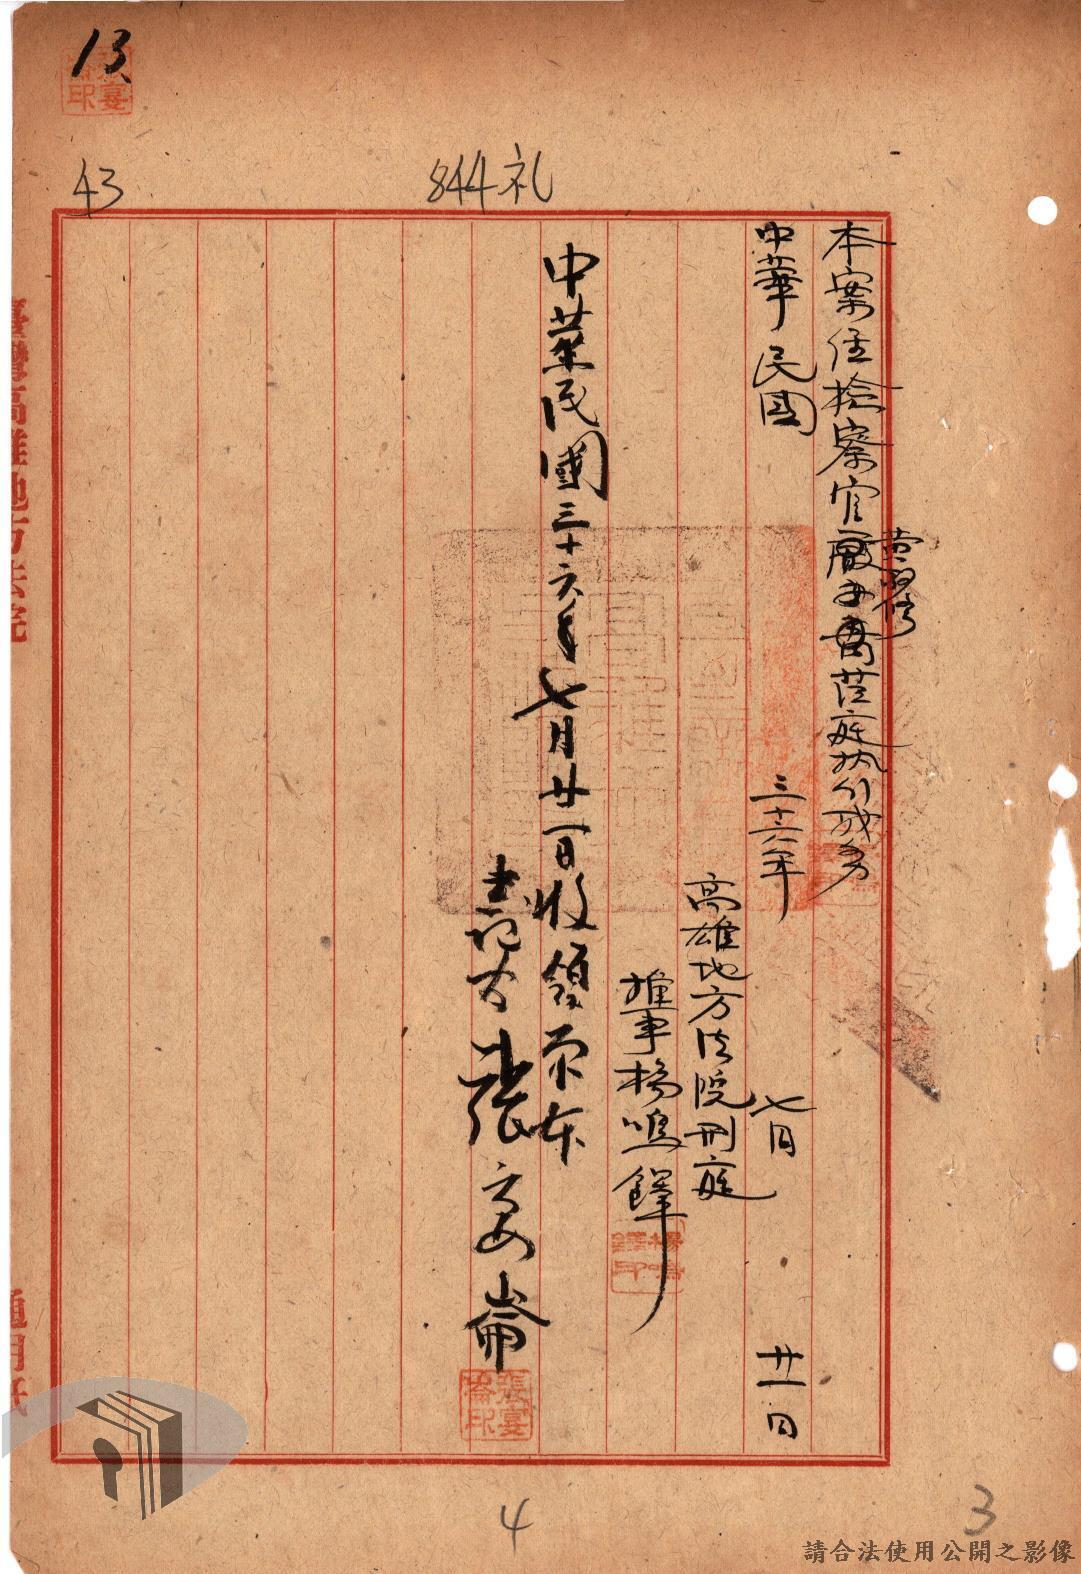 13
43
844礼
本案任檢察官莅庭執行职务
中華民國三十六年七月廿一日
高雄地方法院刑庭
推事楊鳴鐸
中華民國三十六年七月廿一日收領原本
書記官張宴崙
張宴崙印
臺灣高雄地方法院
通用紙
4
3
請合法使用公開之影像